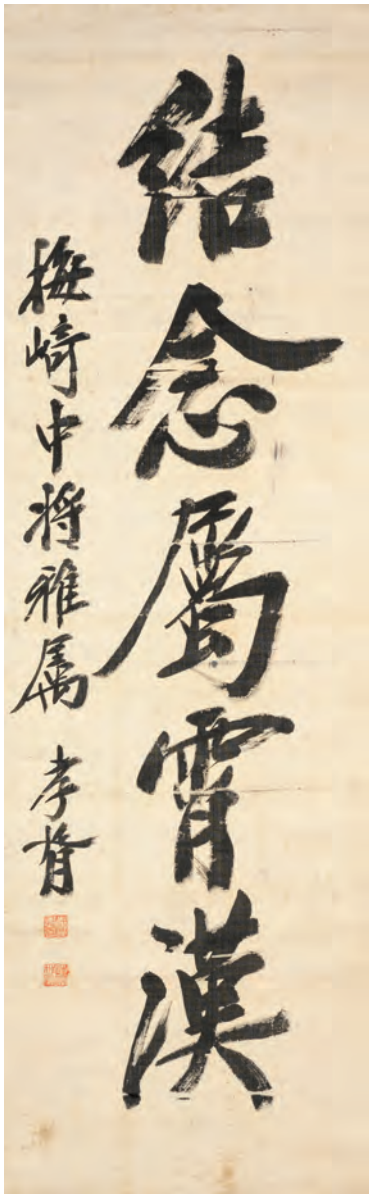 結念屬霄漢
梅崎中將雅屬 孝胥